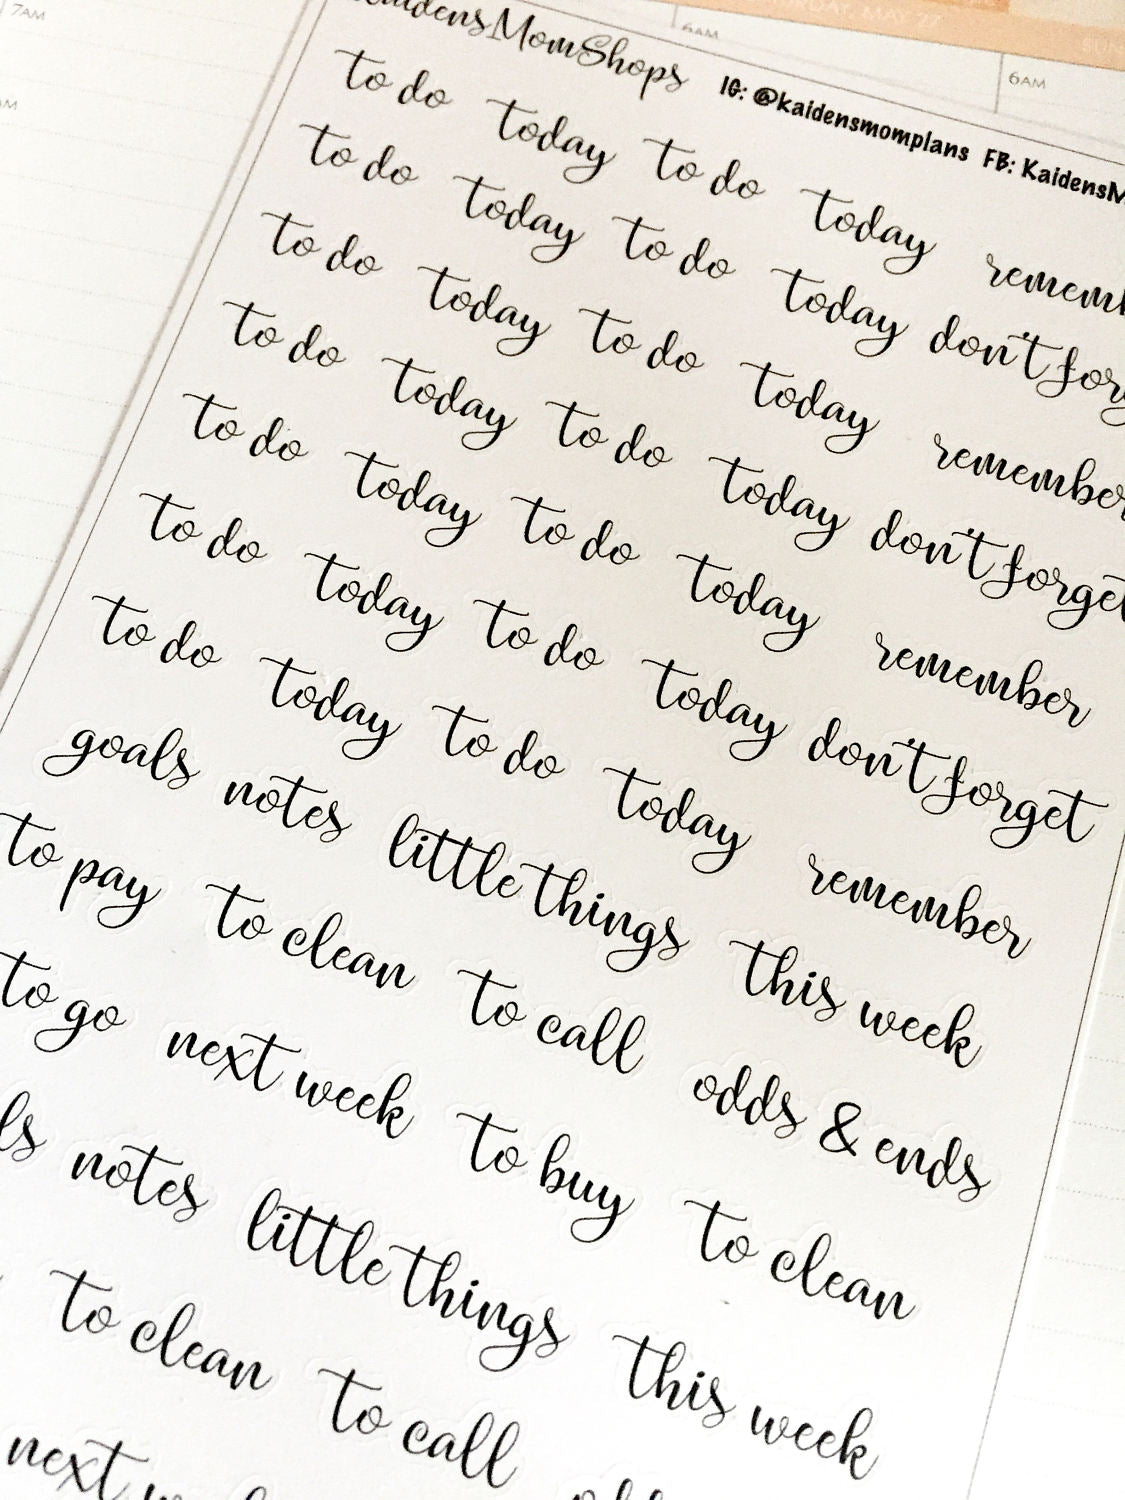 7AM
6AM
6AM
KaidensMomShops IG: @kaidensmomplans FB: KaidensM
to do today to do today rememb
to do today to do today don't forg
to do today to do today remember
to do today to do today don't forget
to do today to do today remember
to do today to do today don't forget
to do today to do today remember
goals notes little things this week
to pay to clean to call odds & ends
to go next week to buy to clean
ls notes little things this week
to clean to call
next